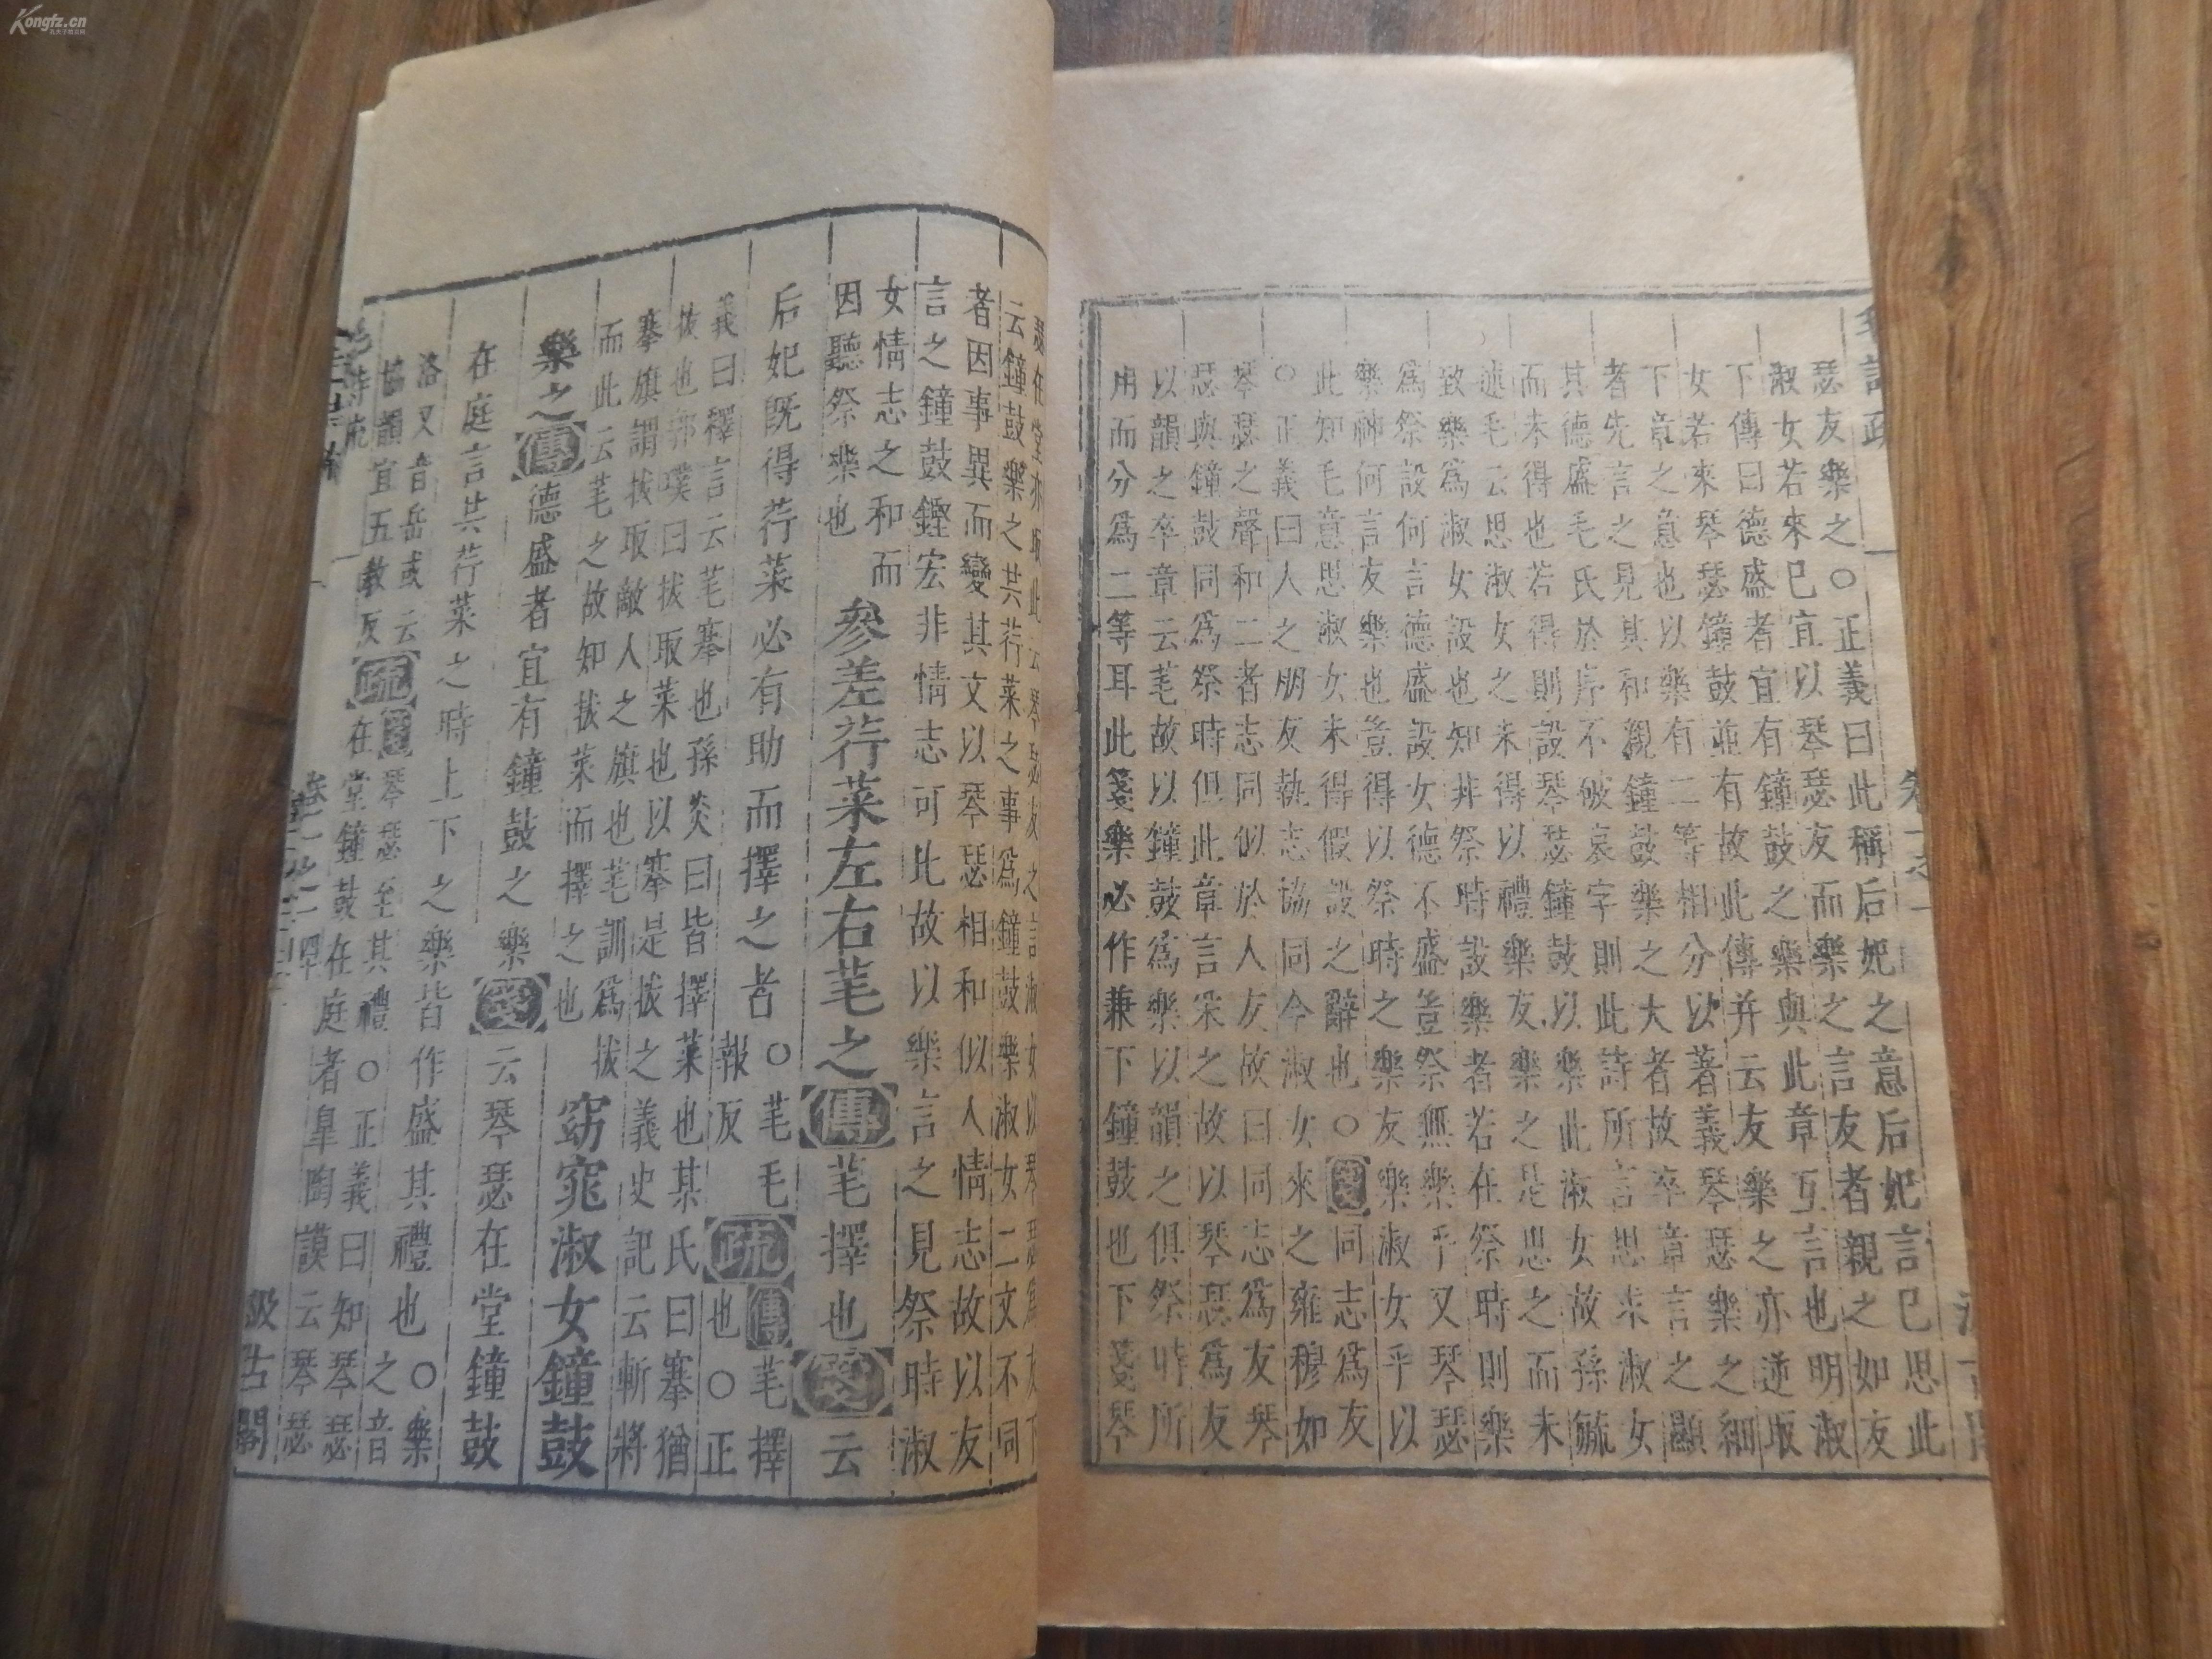 毛詩疏　卷一之一
瑟友樂之○正義曰此稱后妃之意后妃言已思此
淑女若來已宜以琴瑟友而樂之言友者親之如友
下傳曰德盛者宜有鐘鼓之樂與此章互言也明淑
女若來琴瑟鐘鼓並有故此傳并云友樂之亦逆取
下章之意也以樂有二等相分以著義琴瑟樂之細
者先言之見其和親鐘鼓樂之大者故卒章言之顯
其德盛毛氏於序不破哀字則此詩所言思求淑女
而未得也若得則設琴瑟鐘鼓以樂此淑女故孫毓
述毛云思淑女之未得以禮樂友樂之是思之而未
致樂為淑女設也知非祭時設樂者若在祭時則樂
為祭設何言德盛設女德不盛豈祭無樂乎又琴瑟
樂神何言友樂也豈得以祭時之樂友樂淑女乎以
此知毛意思淑女未得假設之辭也○箋同志為友
○正義曰人之朋友執志協同今淑女來之雍穆如
琴瑟之聲和二者志同似於人友故曰同志為友琴
瑟與鐘鼓同為祭時但此章言采之故以琴瑟為友
以韻之卒章云芼故以鐘鼓為樂以韻之俱祭時所
用而分為二等耳此箋樂必作兼下鐘鼓也下箋琴
瑟在堂亦取此云琴瑟友之言淑女以琴瑟為友下
云鐘鼓樂之共荇菜之事為鐘鼓樂淑女二文不同
者因事異而變其文以琴瑟相和似人情志故以友
言之鐘鼓鏗宏非情志可比故以樂言之見祭時淑
女情志之和而
因聽祭樂也
參差荇菜左右芼之傳芼擇也箋云
后妃既得荇菜必有助而擇之者○芼毛報反疏傳芼擇也○正
義曰釋言云芼搴也孫炎曰皆擇菜也某氏曰搴猶
拔也郭璞曰拔取菜也以搴是拔之義史記云斬將
搴旗謂拔取敵人之旗也芼訓為拔
而此云芼之故知拔菜而擇之也
窈窕淑女鐘鼓
樂之傳德盛者宜有鐘鼓之樂箋云琴瑟在堂鐘鼓
在庭言共荇菜之時上下之樂皆作盛其禮也○樂之音
洛又音岳或云
協韻宜五教反
疏箋琴瑟至其禮○正義曰知琴瑟
在堂鐘鼓在庭者皋陶謨云琴瑟
毛詩疏　卷一之一　汲古閣
Kongfz.cn